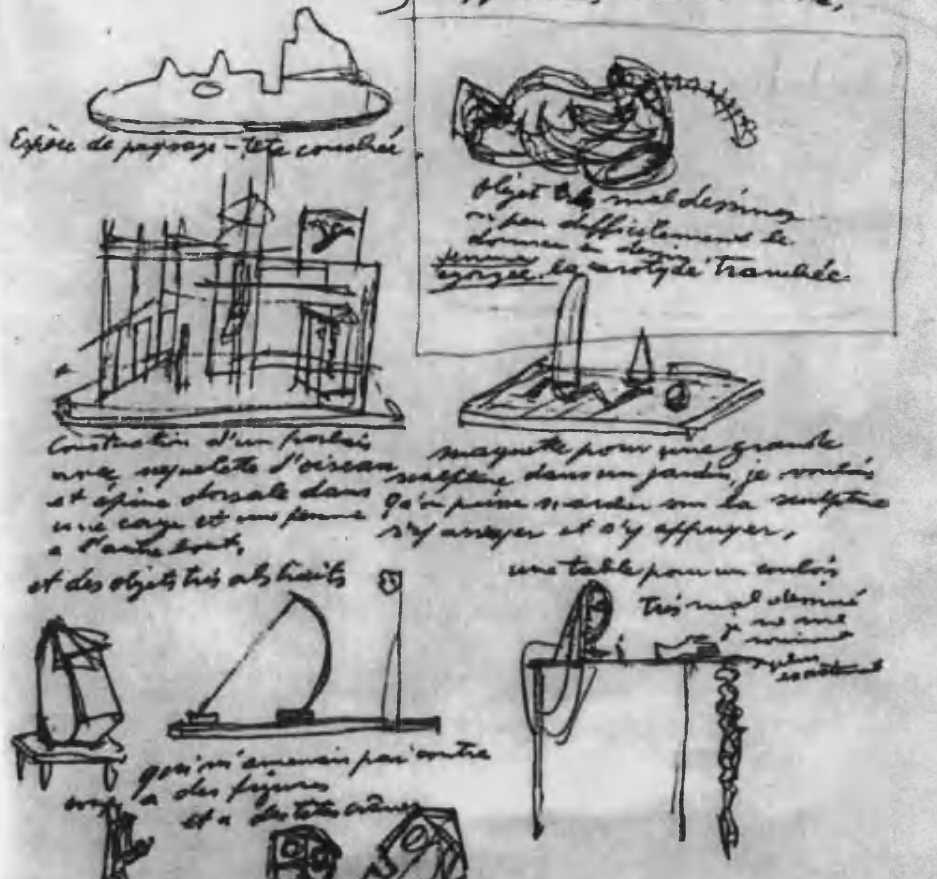 Espèce de paysage - tête couchée.
objet très mal dessiné
on peu difficilement le
donner en dessin
femme
égorgée la carotyde tranchée
Construction d'un palais
avec squelette d'oiseau
et épine dorsale dans
une cage et une femme
a l'autre bout.
maquette pour une grande
sculpture dans un jardin, je voulais
qu'on puisse marcher sur la sculpture
s'y asseyer et s'y appuyer.
et des objets très abstraits
une table pour un couloir
Très mal dessiné
je ne me
plus
exactement
qui m'amenais par contre
coup a des figures
et a des têtes crânes